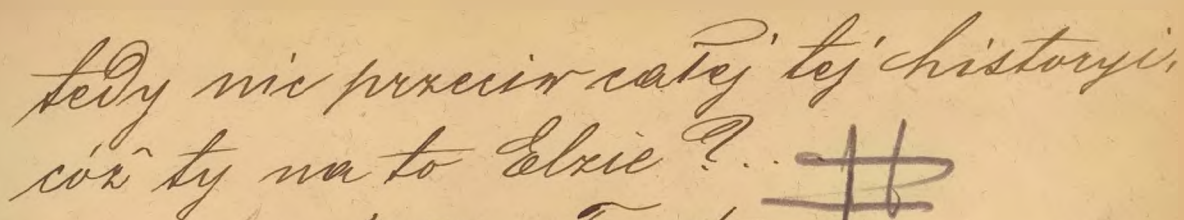 tedy nic przeciw całej tej historyi,
cóż ty na to Elzie?..